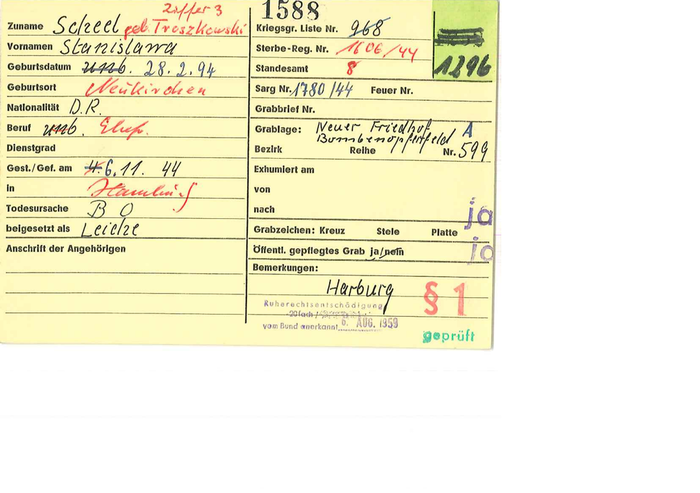 Ziffer 3
Zuname Scheel geb. Troszkowski
Vornamen Stanislawa
Geburtsdatum unb. 28.2.94
Geburtsort Neukirchen
Nationalität D.R.
Beruf unb. Ehefr.
Dienstgrad
Gest./Gef. am 6.11.44
in Hamburg
Todesursache B O
beigesetzt als Leiche
Anschrift der Angehörigen
1588
Kriegsgr. Liste Nr. 968
Sterbe-Reg. Nr. 1606/44
Standesamt 8
1296
Sarg Nr. 1780/44 Feuer Nr.
Grabbrief Nr.
Grablage: Neuer Friedhof A
Bombenopferfeld
Bezirk Reihe Nr. 599
Exhumiert am
von
nach
ja
Grabzeichen: Kreuz Stele Platte
Öffentl. gepflegtes Grab ja/nein ja
Bemerkungen:
Harburg § 1
Ruherechtsentschädigung
-20fach
vom Bund anerkannt 6. AUG. 1959
geprüft